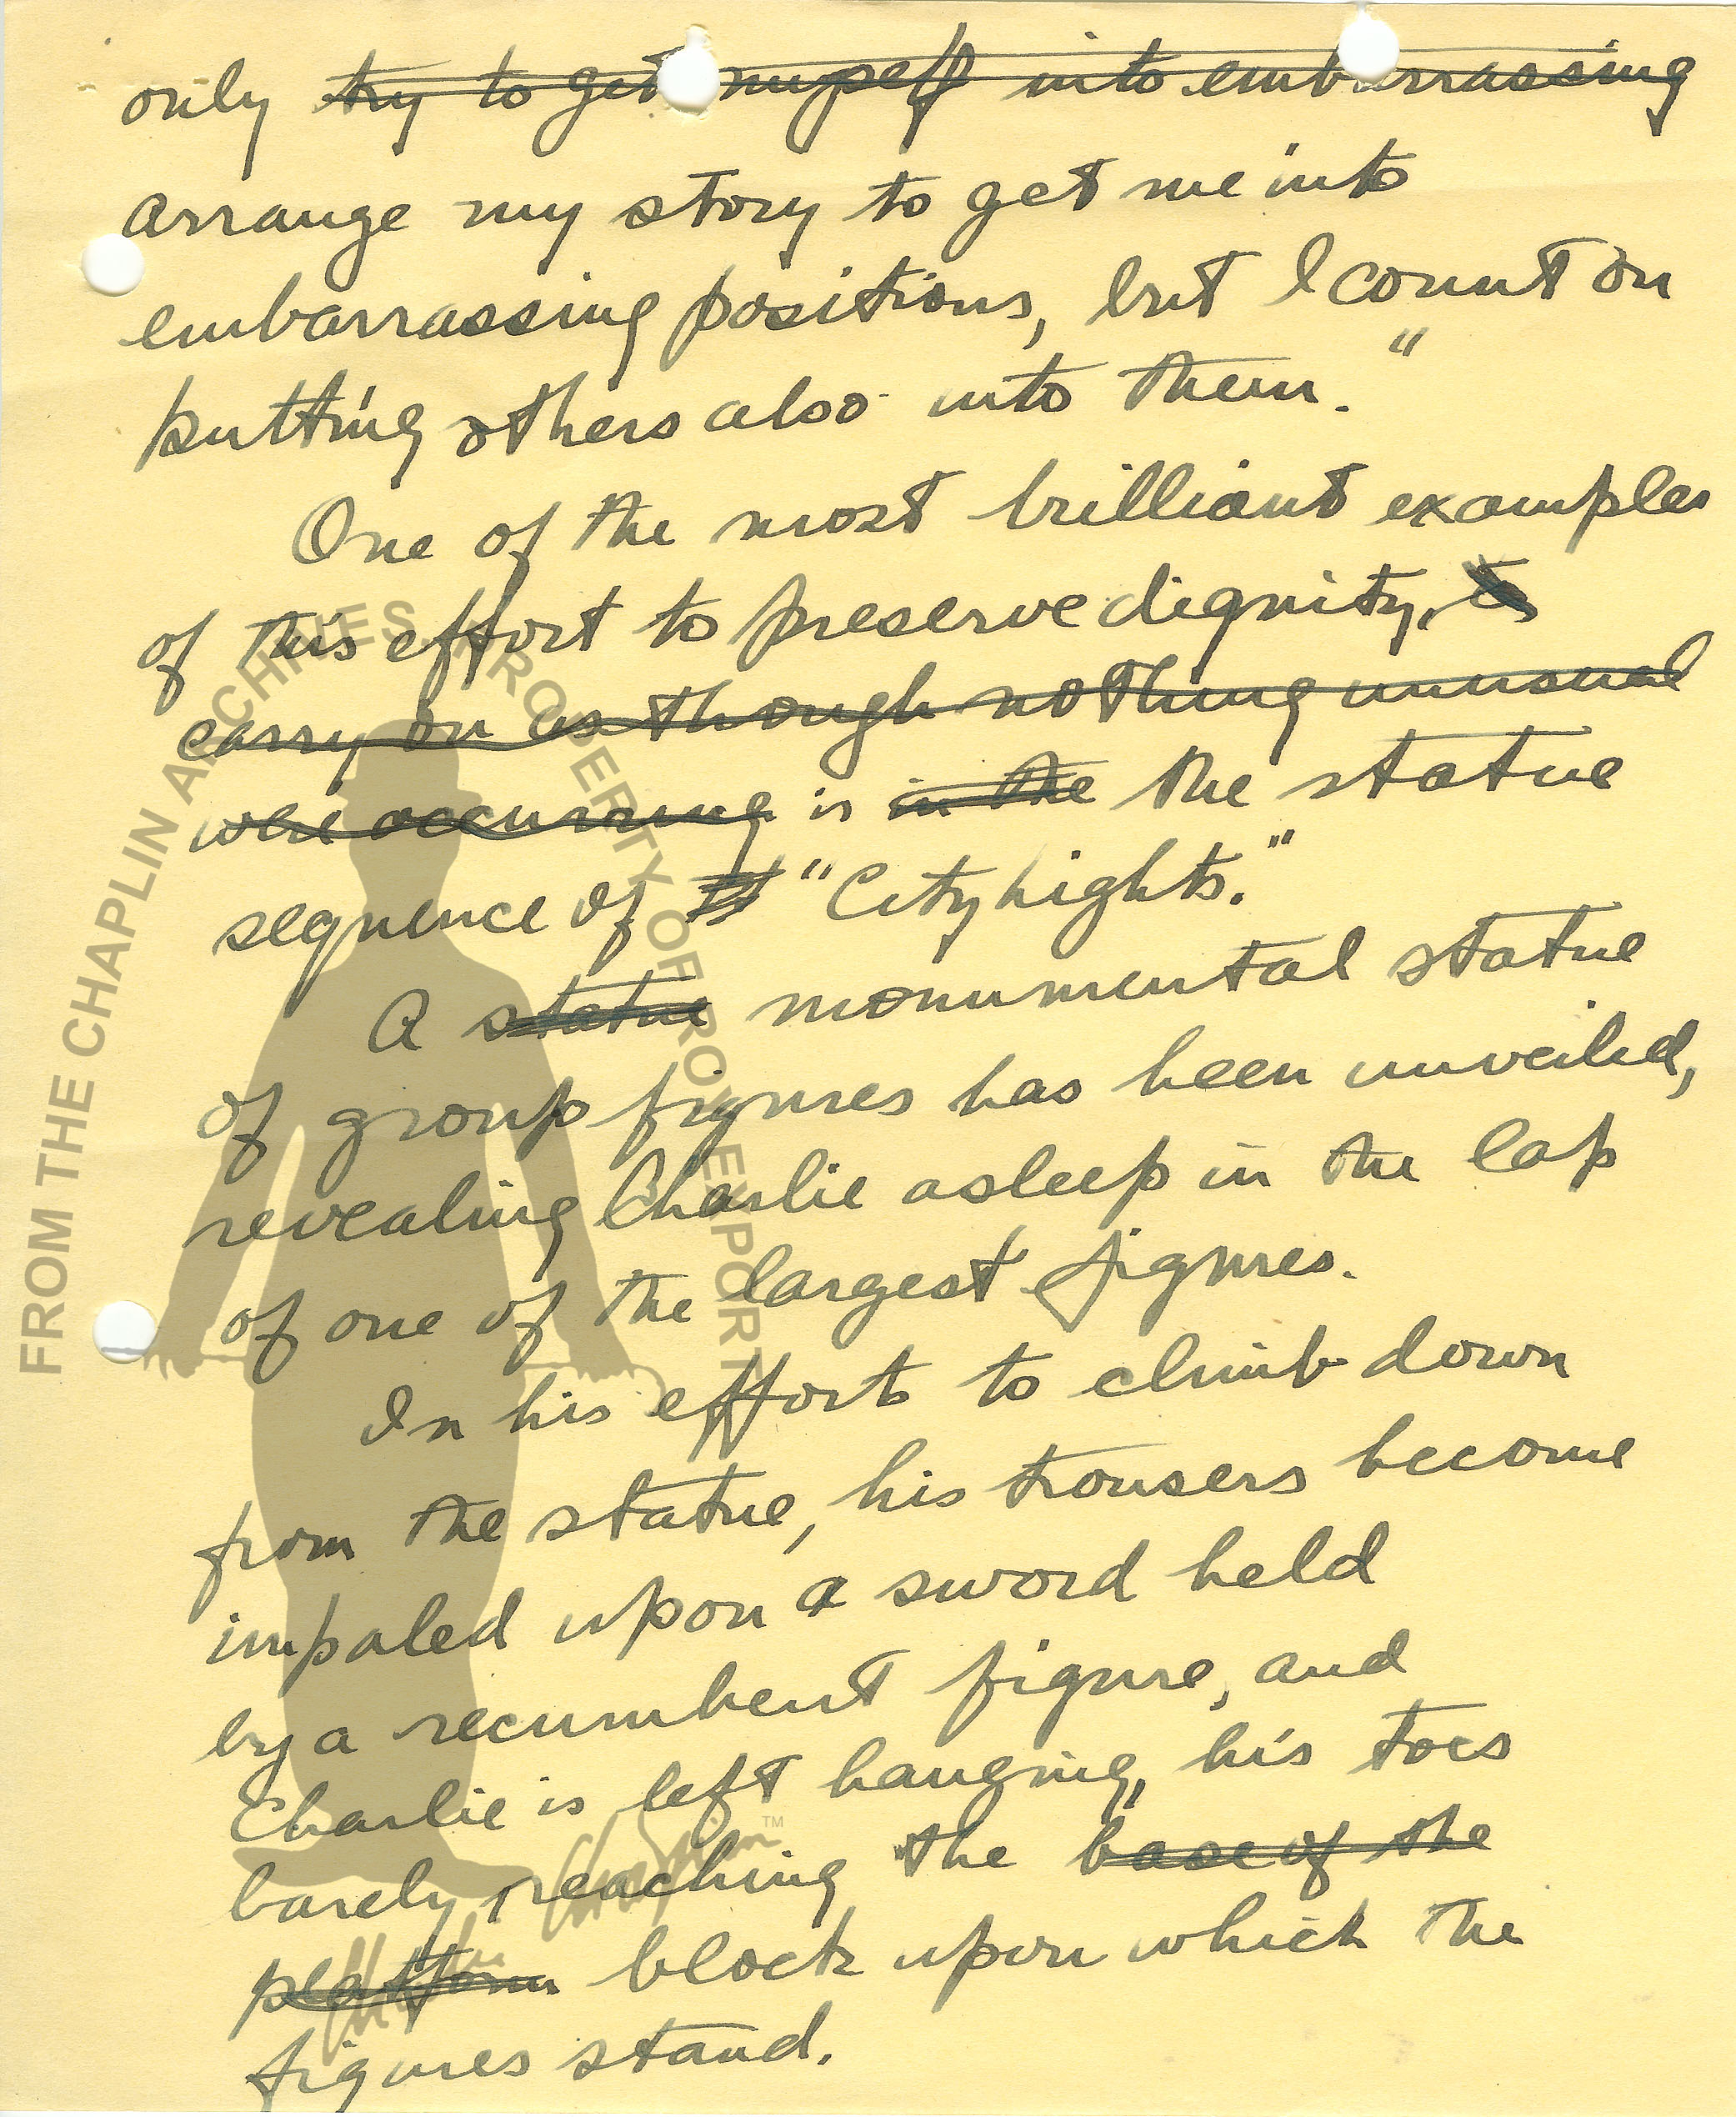 only ~~try to get myself into embarrassing~~
arrange my story to get me into
embarrassing positions, but I count on
putting others also into them."
One of the most brilliant examples
of this effort to preserve dignity, ~~to~~
~~carry on as though nothing unusual~~
~~were occurring~~ is ~~in the~~ the statue
sequence of "City Lights."
A ~~statue~~ monumental statue
of group figures has been unveiled,
revealing Charlie asleep in the lap
of one of the largest figures.
In his effort to climb down
from the statue, his trousers become
impaled upon a sword held
by a recumbent figure, and
Charlie is left hanging, his toes
barely reaching the ~~base of the~~
~~platform~~ block upon which the
figures stand.
FROM THE CHAPLIN ARCHIVES. PROPERTY OF ROY EXPORT
Charlie Chaplin™